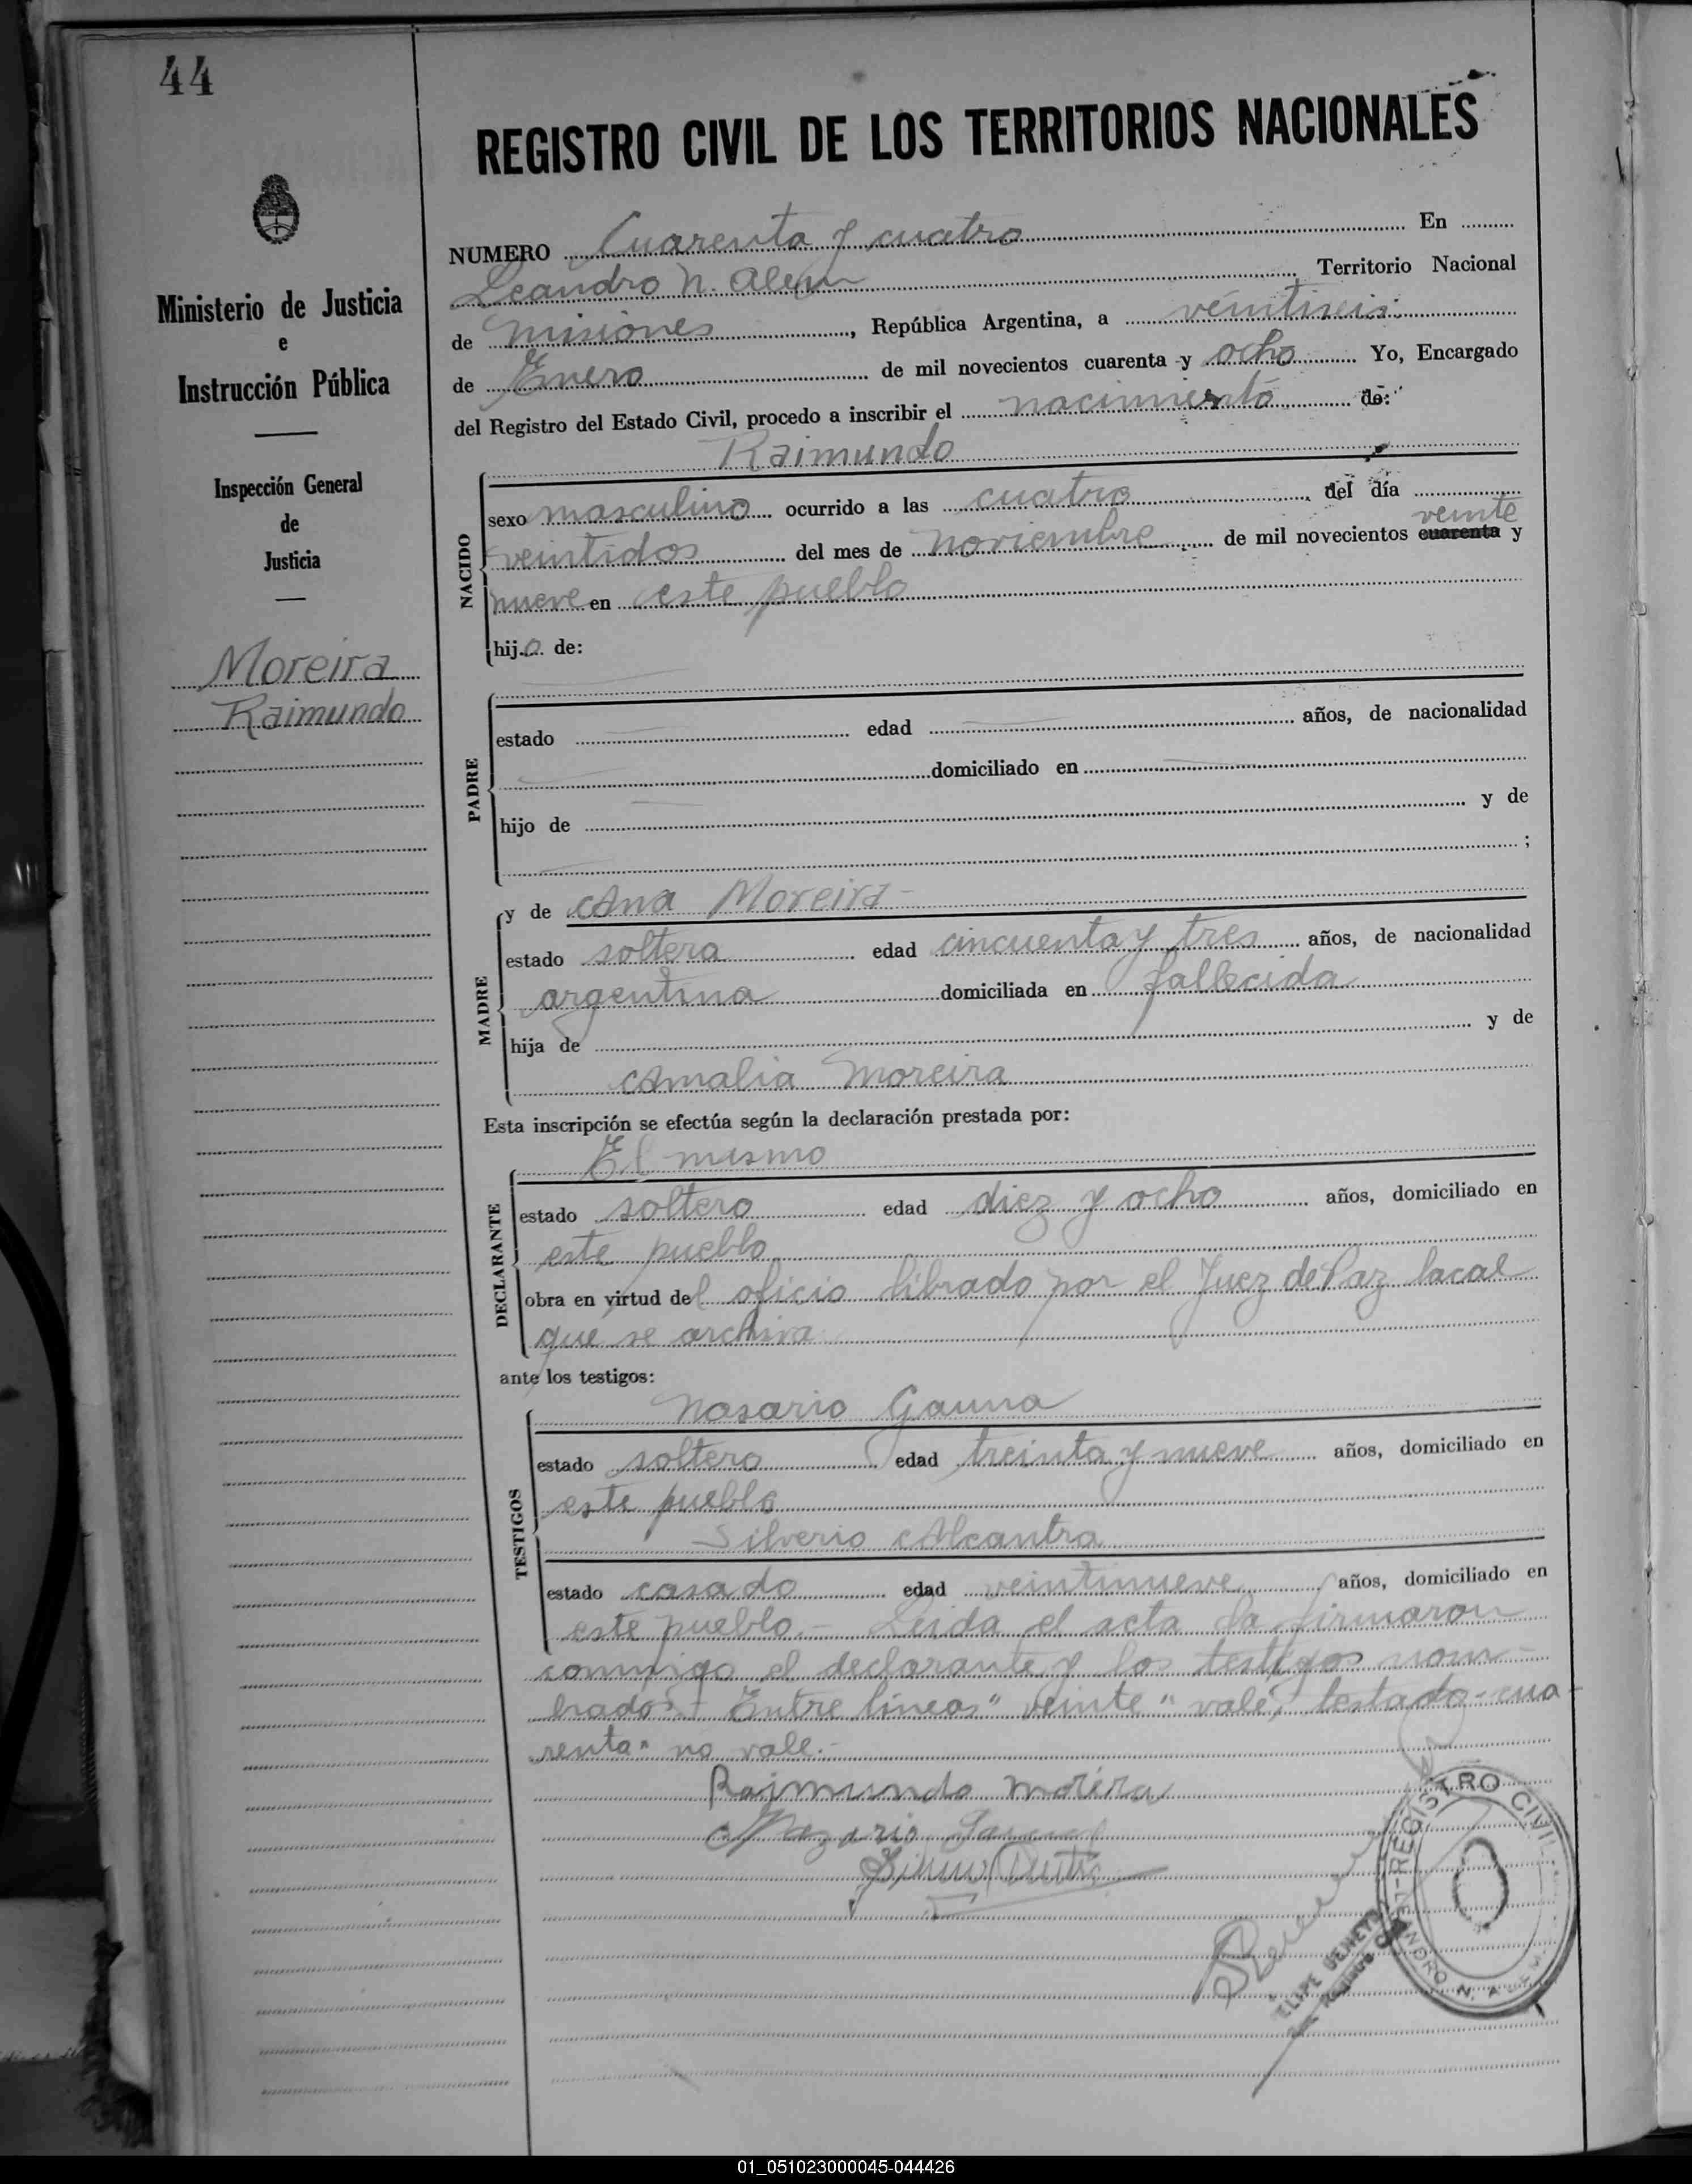 44
REGISTRO CIVIL DE LOS TERRITORIOS NACIONALES
Ministerio de Justicia
e
Instrucción Pública
Inspección General
de
Justicia
Moreira
Raimundo
NUMERO Cuarenta y cuatro En
Leandro N. Alem Territorio Nacional
de Misiones, República Argentina, a veintiseis
de Enero de mil novecientos cuarenta y ocho Yo, Encargado
del Registro del Estado Civil, procedo a inscribir el nacimiento de:
Raimundo
NACIDO
sexo masculino ocurrido a las cuatro del día
veinte
veintidos del mes de noviembre de mil novecientos cuarenta y
nueve en este pueblo
hijo de:
PADRE
estado edad años, de nacionalidad
domiciliado en
hijo de y de
;
MADRE
y de Ana Moreira
estado soltera edad cincuenta y tres años, de nacionalidad
argentina domiciliada en fallecida
hija de y de
Amalia Moreira
Esta inscripción se efectúa según la declaración prestada por:
El mismo
DECLARANTE
estado soltero edad diez y ocho años, domiciliado en
este pueblo
obra en virtud del oficio librado por el Juez de Paz local
que se archiva
ante los testigos:
TESTIGOS
Nasario Gauna
estado soltero edad treinta y nueve años, domiciliado en
este pueblo
Silverio Alcantra
estado casado edad veintinueve años, domiciliado en
este pueblo.- Leida el acta la firmaron
conmigo el declarante y los testigos nom-
brados Entre lineas "veinte" vale, testado-cua-
renta" no vale.-
Raimundo moréra
REGISTRO CIVIL
LEANDRO N. ALEM
01_051023000045-044426